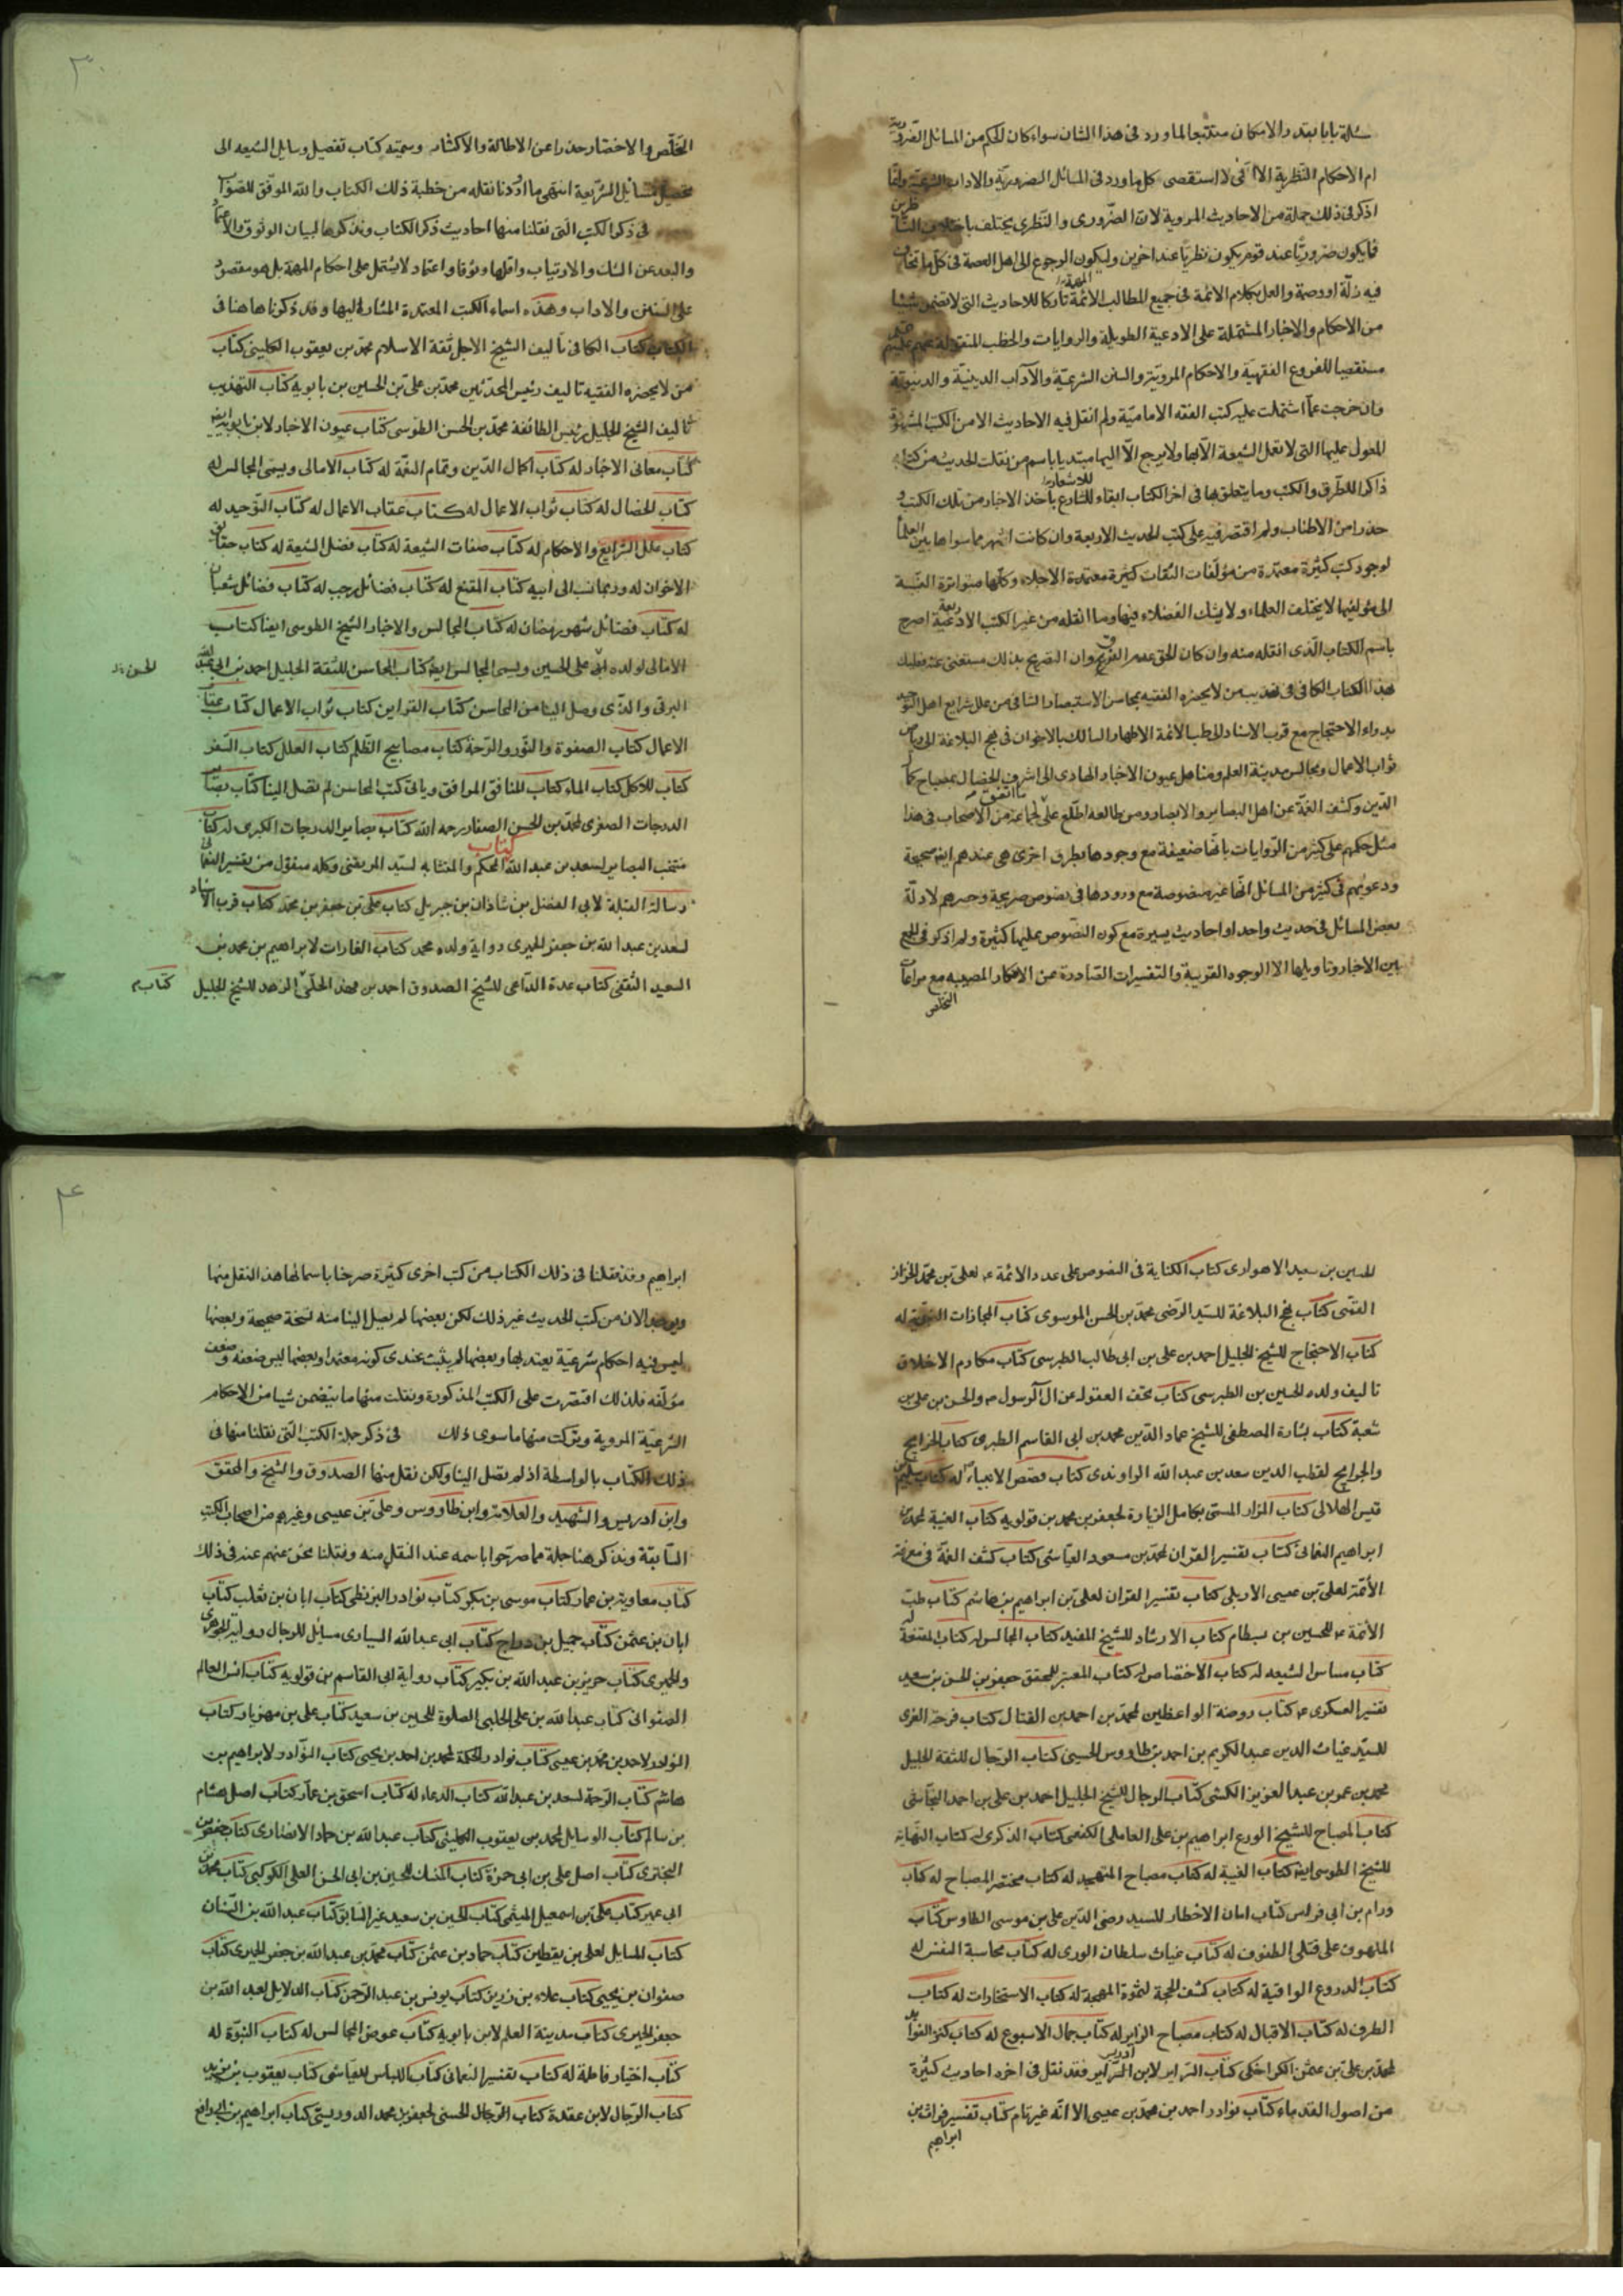 مسئلة بابا بقدر الامكان متتبعا لما ورد فى هذا الشان سواء كان الحكم من المسائل الضرورية
ام الاحكام النظرية الا انى لا استقصى كل ما ورد فى المسائل الضرورية والاداب الشرعية وانما
اذكر فى ذلك جملة من الاحاديث المروية لان الضرورى والنظرى يختلف باختلاف الناظرين
فما يكون ضروريا عند قوم يكون نظريا عند اخرين وليكون الرجوع الى اهل العصمة فى كل ما تخاف
فيه زلة او وصمة والعمل بكلام الائمة فى جميع المطالب المهمة تاركا للاحاديث التى لا تتضمن شيئا
من الاحكام والاخبار المشتملة على الادعية الطويلة والزيارات والخطب المنقولة عنهم عليهم
مستقصيا للفروع الفقهية والاحكام المروية والسنن الشرعية والآداب الدينية والدنيوية
وان خرجت عما اشتملت عليه كتب الفقه الامامية ولم انقل فيه الاحاديث الا من الكتب المشهورة
المعول عليها التى لا تعمل الشيعة الا بها ولا يرجع الا اليها مبتديا باسم من نقلت الحديث من كتابه
ذاكرا للطرق والكتب وما يتعلق بها فى اخر الكتاب ابقاء للاشعار باخذ الاخبار من تلك الكتب و
حذرا من الاطناب ولم اقتصر فيه على كتب الحديث الاربعة وان كانت اشهر مما سواها بين العلماء
لوجود كتب كثيرة معتمدة من مؤلفات الثقات كثيرة معتمدة الاجلاء وكلها متواترة النسبة
الى مؤلفيها لا يختلف العلماء ولا يشك الفضلاء فيها وما انقله من غير الكتب الاربعة اصرح
باسم الكتاب الذى انقله منه وان كان الحق عدم الفرق وان التصريح بذلك مستغنى عنه فعليك
بهذا الكتاب الكافى فى تهذيب من لا يحضره الفقيه بمحاسن الاستبصار الشافى من علل شرايع اهل التوحيد
بدواء الاحتجاج مع قرب الاسناد الى طب الائمة الاطهار السالك بالاخوان فى نهج البلاغة الى رياض
ثواب الاعمال ومجالس مدينة العلم ومناهل عيون الاخبار الهادى الى اشرف الخصال بمصباح كمال
الدين وكشف الغمة عن اهل البصاير والابصار ومن طالعه اطلع على ما اتفق لجماعة من الاصحاب فى هذا
مثل حكمهم على كثير من الروايات بانها ضعيفة مع وجودها بطرق اخرى هى عندهم ايضا صحيحة
ودعويهم فى كثير من المسائل انها غير منصوصة مع ورودها فى نصوص صريحة وحصرهم لادلة
بعض المسائل فى حديث واحد او احاديث يسيرة مع كون النصوص عليها كثيرة ولم اذكر فى الجمع
بين الاخبار وتاويلها الا الوجوه القريبة والتفسيرات الصادرة عن الافكار المصيبه مع مراعات
التخلص
٣
التخلّص والاختصار حذرا عن الاطالة والاكثار وسميته كتاب تفصيل وسايل الشيعه الى
تحصيل مسائل الشريعة انتهى ما اردنا نقله من خطبة ذلك الكتاب والله الموفق للصواب
فى ذكر الكتب التى نقلنا منها احاديث ذكر الكتاب ونذكرها لبيان الوثوق والاعتماد
والبعد عن الشك والارتياب واقلها وثوقا واعتماد لا يشتمل على احكام المهمة بل هو مقصور
على السنن والاداب وهذه اسماء الكتب المعتمدة المشار اليها وقد ذكرناها هنا فى
الكتاب كتاب الكافى تاليف الشيخ الاجل ثقة الاسلام محمد بن يعقوب الكلينى كتاب
من لا يحضره الفقيه تاليف رئيس المحدثين محمد بن على بن الحسين بن بابويه كتاب التهذيب
تاليف الشيخ الجليل رئيس الطائفة محمد بن الحسن الطوسى كتاب عيون الاخبار لابن بابويه ايضا
كتاب معانى الاخبار له كتاب اكمال الدين وتمام النعمة له كتاب الامالى ويسمى المجالس له
كتاب الخصال له كتاب ثواب الاعمال له كتاب عقاب الاعمال له كتاب التوحيد له
كتاب علل الشرايع والاحكام له كتاب صفات الشيعة له كتاب فضل الشيعة له كتاب حقوق
الاخوان له وربما نسب الى ابيه كتاب المقنع له كتاب فضائل رجب له كتاب فضائل شعبان
له كتاب فضائل شهر رمضان له كتاب المجالس والاخبار للشيخ الطوسى ايضا كتاب
الامالى لولده ابى على الحسين ويسمى المجالس ايضا كتاب المحاسن للثقة الجليل احمد بن ابى عبد الله
الحسن
البرقى والذى وصل الينا من المحاسن كتاب القراين كتاب ثواب الاعمال كتاب عقاب
الاعمال كتاب الصفوة والنور والرحمة كتاب مصابيح الظلم كتاب العلل كتاب السفر
كتاب للاكل كتاب الماء كتاب المنافق المرافق وباقى كتب المحاسن لم تصل الينا كتاب بصائر
الدرجات الصغرى لمحمد بن الحسن الصفار رحمه الله كتاب بصاير الدرجات الكبرى له كتاب
منتخب البصاير لسعد بن عبد الله كتاب المحكم والمتشابه لسيد المرتضى وكله منقول من تفسير النعمانى
رسالة القبلة لابى الفضل بن شاذان بن جبريل كتاب على بن جعفر بن محمد كتاب قرب الاسناد
لسعد بن عبد الله بن جعفر الحميرى رواية ولده محمد كتاب الغارات لابراهيم بن محمد بن
السعيد الثقفى كتاب عدة الداعى للشيخ الصدوق احمد بن فهد الحلى الزهد للشيخ الجليل
كتاب
الحسين بن سعيد الاهوازى كتاب الكفاية فى النصوص على عدد الائمة ع لعلى بن محمد الخزاز
القمى كتاب نهج البلاغة للسيد الرضى محمد بن الحسن الموسوى كتاب المجازات النبوية له
كتاب الاحتجاج للشيخ الجليل احمد بن على بن ابى طالب الطبرسى كتاب مكارم الاخلاق
تاليف ولده الحسين بن الطبرسى كتاب تحف العقول عن ال الرسول ص والحسن بن على بن
شعبة كتاب بشارة المصطفى للشيخ عماد الدين محمد بن ابى القاسم الطبرى كتاب الخرايج
والجرايح لقطب الدين سعد بن عبد الله الراوندى كتاب قصص الانبياء له كتاب سليم بن
قيس الهلالى كتاب المزار المسمى بكامل الزيارة لجعفر بن محمد بن قولويه كتاب الغيبة لمحمد بن
ابراهيم النعمانى كتاب تفسير القران لمحمد بن مسعود العياشى كتاب كشف الغمة فى معرفة
الأئمة لعلى بن عيسى الاربلى كتاب تفسير القران لعلى بن ابراهيم بن هاشم كتاب طب
الأئمة ع للحسين بن بسطام كتاب الارشاد للشيخ المفيد كتاب المجالس له كتاب المقنعة له
كتاب مسار الشيعه له كتاب الاختصاص له كتاب المعتبر للمحقق جعفر بن الحسن بن سعيد
تفسير العسكرى ع كتاب روضة الواعظين لمحمد بن احمد بن الفتال كتاب فرحة الغرى
للسيد غياث الدين عبد الكريم بن احمد بن طاووس الحسينى كتاب الرجال للثقة الجليل
محمد بن عمر بن عبد العزيز الكشى كتاب الرجال للشيخ الجليل احمد بن على بن احمد النجاشى
كتاب المصباح للشيخ الورع ابراهيم بن على العاملى الكفعمى كتاب الذكرى له كتاب النهاية
للشيخ الطوسى ايضا كتاب الغيبة له كتاب مصباح المتهجد له كتاب مختصر المصباح له كتاب
ورام بن ابى فراس كتاب امان الاخطار للسيد رضى الدين على بن موسى الطاوس كتاب
الملهوف على قتلى الطفوف له كتاب غياث سلطان الورى له كتاب محاسبة النفس له
كتاب الدروع الواقية له كتاب كشف المحجة لثمرة المهجة له كتاب الاستخارات له كتاب
الطرف له كتاب الاقبال له كتاب مصباح الزاير له كتاب جمال الاسبوع له كتاب كنز الفوائد
لمحمد بن على بن عثمن الكراجكى كتاب السراير لابن ادريس فقد نقل فى اخره احاديث كثيرة
من اصول القدماء كتاب نوادر احمد بن محمد بن عيسى الا انه غير تام كتاب تفسير فرات بن
ابراهيم
٤
ابراهيم وقد نقلنا فى ذلك الكتاب من كتب اخرى كثيرة صرحنا باسمائها عند النقل منها
ويوجد الان من كتب الحديث غير ذلك لكن بعضها لم يصل الينا منه نسخة صحيحة وبعضها
ليس فيه احكام شرعية يعتد بها وبعضها لم يثبت عندى كونه معتمدا وبعضها ليس ضعفه وضعف
مؤلفه فلذلك اقتصرت على الكتب المذكورة ونقلت منها ما يتضمن شيا من الاحكام
الشرعية المروية وتركت منها ما سوى ذلك فى ذكر جملة الكتب التى نقلنا منها فى
ذلك الكتاب بالواسطة اذ لم تصل الينا ولكن نقل منها الصدوق والشيخ والمحقق
وابن ادريس والشهيد والعلامة وابن طاووس وعلى بن عيسى وغيرهم من اصحاب الكتب
السابقة ونذكر هنا جملة مما صرحوا باسمه عند النقل منه ونقلنا نحن عنهم عنه فى ذلك
كتاب معاوية بن عمار كتاب موسى بن بكر كتاب نوادر البزنطى كتاب ابان بن تغلب كتاب
ابان بن عثمن كتاب جميل بن دراج كتاب ابى عبد الله السيارى مسائل للرجال رواية الجوهرى
والحميرى كتاب حريز بن عبد الله بن بكير كتاب رواية ابى القاسم بن قولويه كتاب انس العالم
الصفوانى كتاب عبد الله بن على الحلبى الصلوة للحسين بن سعيد كتاب على بن مهزيار كتاب
النوادر لاحمد بن محمد بن عيسى كتاب نوادر الحكمة لمحمد بن احمد بن يحيى كتاب النوادر لابراهيم بن
هاشم كتاب الرحمة لسعد بن عبد الله كتاب الدعاء له كتاب اسحق بن عمار كتاب اصل هشام
بن سالم كتاب الوسايل لمحمد بن يعقوب الكلينى كتاب عبد الله بن حماد الانصارى كتاب حفص بن
البخترى كتاب اصل على بن ابى حمزة كتاب المنسك للحسين بن ابى الحسن العلوى الكوكبى كتاب محمد بن
ابى عمير كتاب على بن اسمعيل الميثمى كتاب الحسين بن سعيد غير السابق كتاب عبد الله بن السنان
كتاب المسايل لعلى بن يقطين كتاب حماد بن عثمن كتاب محمد بن عبد الله بن جعفر الحميرى كتاب
صفوان بن يحيى كتاب علاء بن رزين كتاب يونس بن عبد الرحمن كتاب الدلايل لعبد الله بن
جعفر الحميرى كتاب مدينة العلم لابن بابويه كتاب عوض المجالس له كتاب النبوة له
كتاب اختيار فاطمة له كتاب تفسير النعمانى كتاب اللباس للعياشى كتاب يعقوب بن يزيد
كتاب الرجال لابن عقدة كتاب الرجال الحسنى لجعفر بن محمد الدوريستى كتاب ابراهيم بن